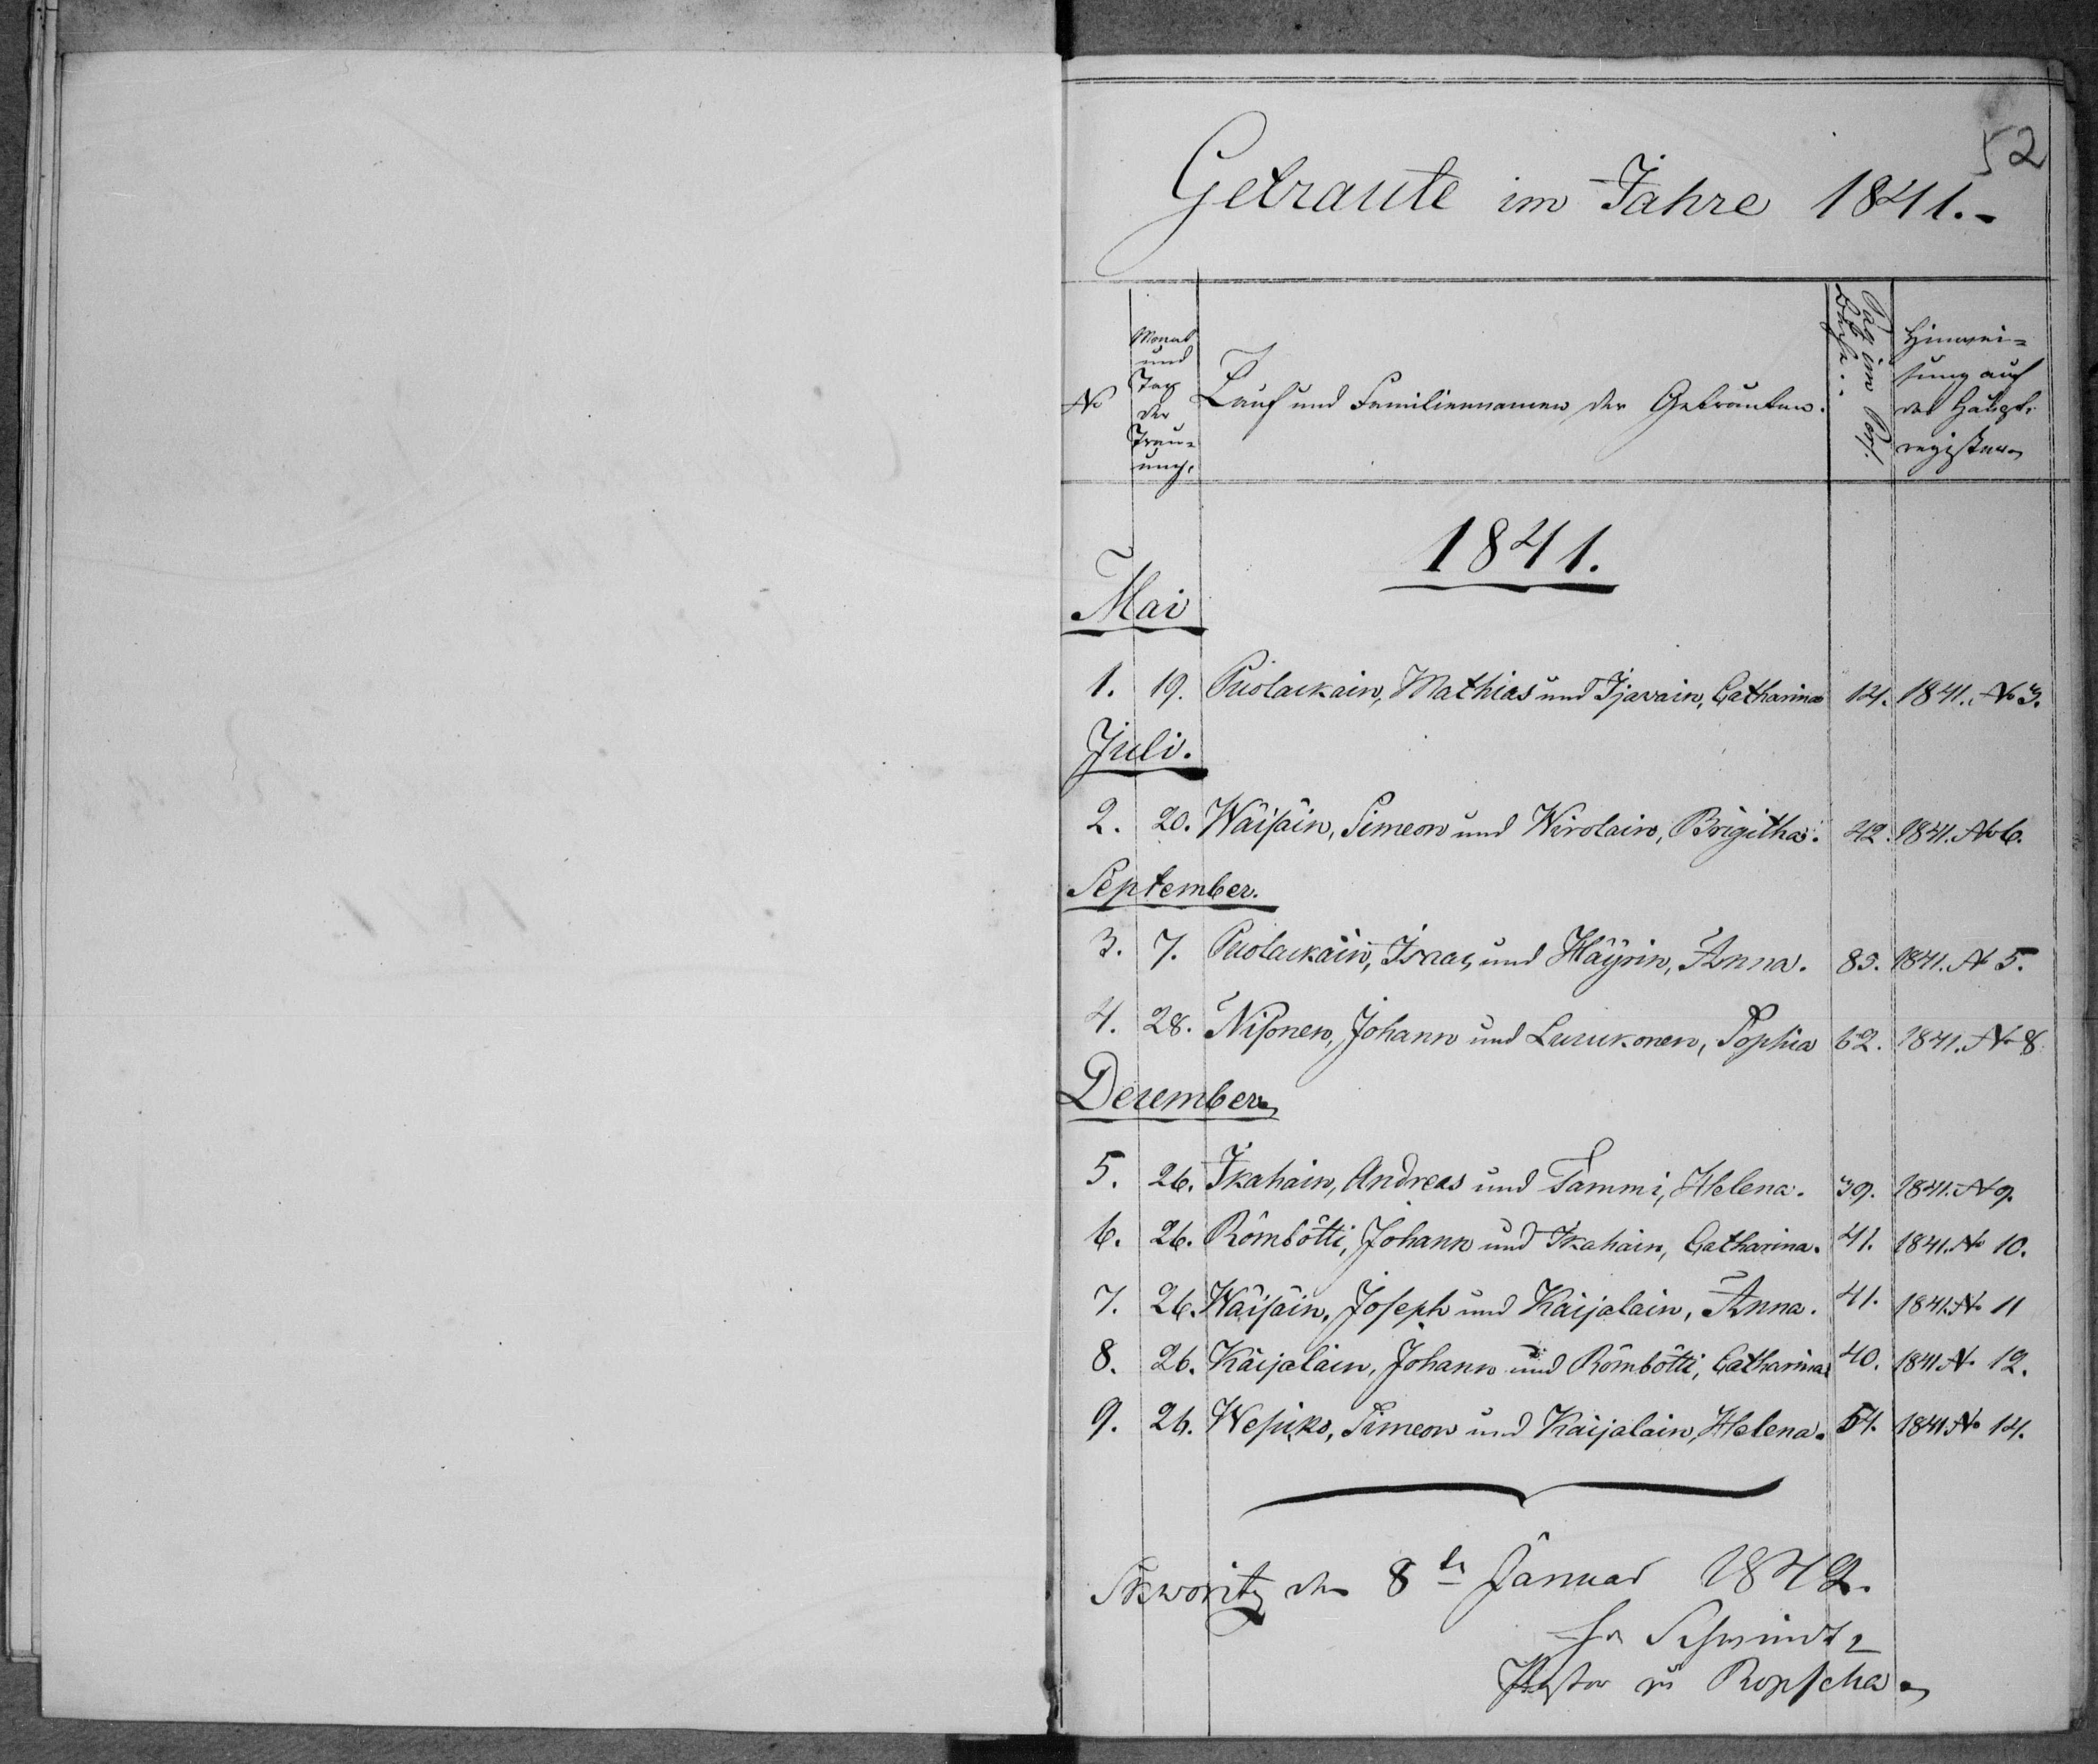 52
Getraute im Jahre 1841.-
No
Monat
und
Tag
der
Trau-
ung.
Tauf und Familiennamen der Getrauten.
Pag im Pers.
Buche.
Hinwei-
sung auf
das Haupt-
register
1841.
Mai
1. 19. Puolackain, Mathias und Ijavain, Catharina 14. 1841. No 3.
Juli.
2. 20. Wäisäin, Simeon und Wirolain, Brigitha. 42. 1841. No 6.
September.
3. 7. Puolackain, Isaac und Häyrin, Anna. 85. 1841. No 5.
4. 28. Nisonen, Johann und Luukonen, Sophia 62. 1841. No 8
December
5. 26. Ikahain, Andreas und Tammi, Helena. 39. 1841. No 9.
6. 26. Römbötti, Johann und Ikahain, Catharina. 41. 1841. No 10.
7. 26. Wäisäin, Joseph und Kaijalain, Anna. 41. 1841. No 11
8. 26. Kaijalain, Johann und Römbötti, Catharina 40. 1841. No 12.
9. 26. Wesiko, Simeon und Kaijalain, Helena. 54. 1841 No 14.
Skworitz den 8ten Januar 1842.
Schwindt
Pastor zu Ropscha